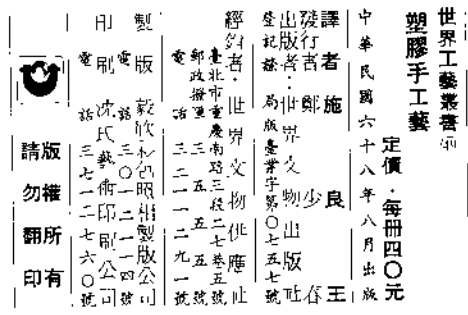 世界工藝叢書
塑膠手工藝
定價．每冊四〇元
中華民國六十八年八月出版
譯者施良王
發行者鄭少春
出版者．世界文物出版社
登記證 局版臺業字第〇七五七號
經銷者．世界文物供應社
臺北市重慶南路三段二七巷五號
郵政撥匯 號
電話 三二一一二九一號
製版 毅欣彩色照相製版公司
電話 三〇一二一一四號
印刷 沈氏藝術印刷公司
電話 三七一二七六〇號
版權所有
請勿翻印